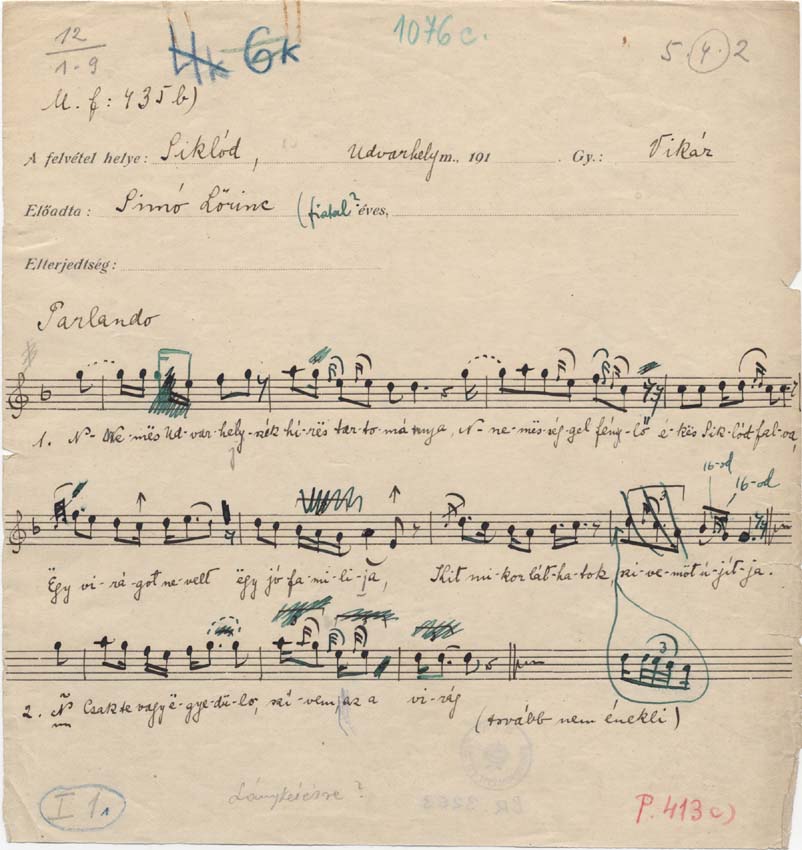 12 4k 6k 1076 c. 5. 4. 2
1-9
M. f: 435 b)
A felvétel helye: Siklód, Udvarhely m., 191 . Gy.: Vikár
Előadta: Simó Lőrinc (fiatal? éves,
Elterjedtség:
Parlando
1. N- Ne-mës Ud-var-hely-nek hí-rës tar-to-mánya, N- ne-mës-ség-gel fény-lő é-kës Sik-lód fal-va,
16-od 16-od
Ëgy vi-rá-got ne-velt ëgy jó fa-mi-li-ja, Kit mi-kor lát-ha-tok, szi-ve-möt ú-jít-ja.
3
2. N Csak te vagy ë-gye-dü-lo, szí-vem, az a vi-rág
(tovább nem énekli)
Lánykérésre?
I 1. P. 413 c)